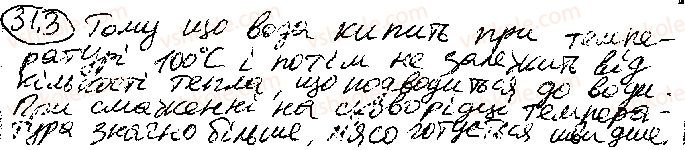 31.3 Тому що вода кипить при темпе-
ратурі 100°С і потім не залежить від
кількості тепла, що подводиться до води.
При смаженні на сковорідці темпера-
тура значно більше, м'ясо готується швидше.